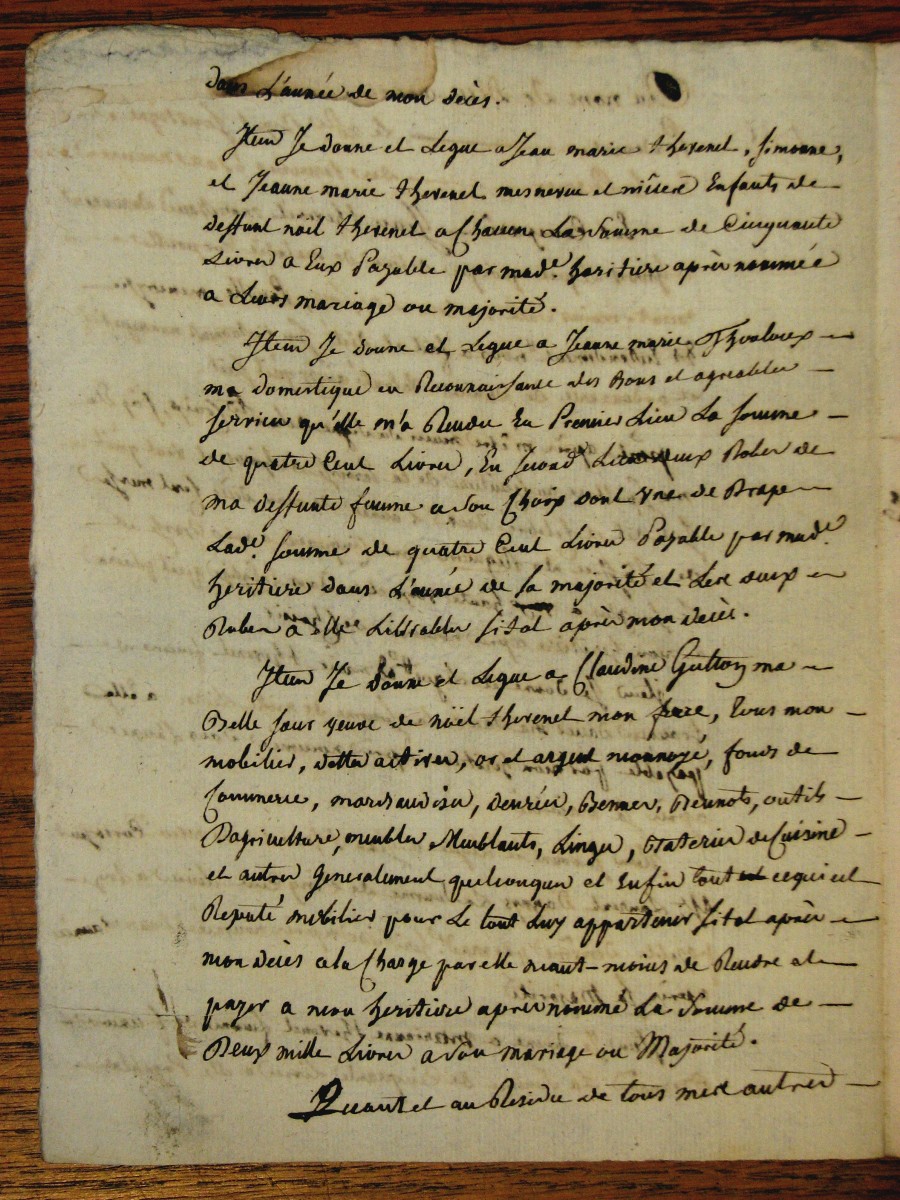 dans L'année de mon decès.
Item Je donne et Legue a Jean marie thevenet, simonne,
et Jeanne marie thevenet mes neveu et niéces Enfants de
deffunt nöel thevenet a Chacun La Somme de Cinquante
Livres a Eux Payable par mad.e heritiere après nommée
a Leurs mariage ou majorité.
Item Je donne et Legue a Jeanne marie
ma domestique en Reconnaissante des Bons et agreables
services qu'elle m'a Rendu En Premier Lieu La somme
de quatre Cent Livres, En Second Lieu deux Robes de
ma deffunte femme a son Choix dont une de Drape
Lad.e somme de quatre Cent Livres Payable par mad.e
heritiere dans L'année de sa majorité et Les deux
Robes à elle sitot après mon decès.
Item Je donne et Legue a Claudine Gutton ma
Belle sœur veuve de nöel thevenet mon frere, tous mon
mobilier, dettes actives, or et argent monnoyé, fonds de
Commerce, marchandises, denrées, Bennes, outils
D'agriculture, meubles Meublants, Linges, de Cuisine
et autres Generalement quelconques et Enfin tout ce qui est
Reputé mobilier pour Le tout Luy appartenir sitot après
mon decès a la Charge par elle neant-moins de Rendre et
payer a mon heritiere après nommé La Somme de
Deux mille Livres a son mariage ou Majorité.
Quant et au Residu de tous mes autres